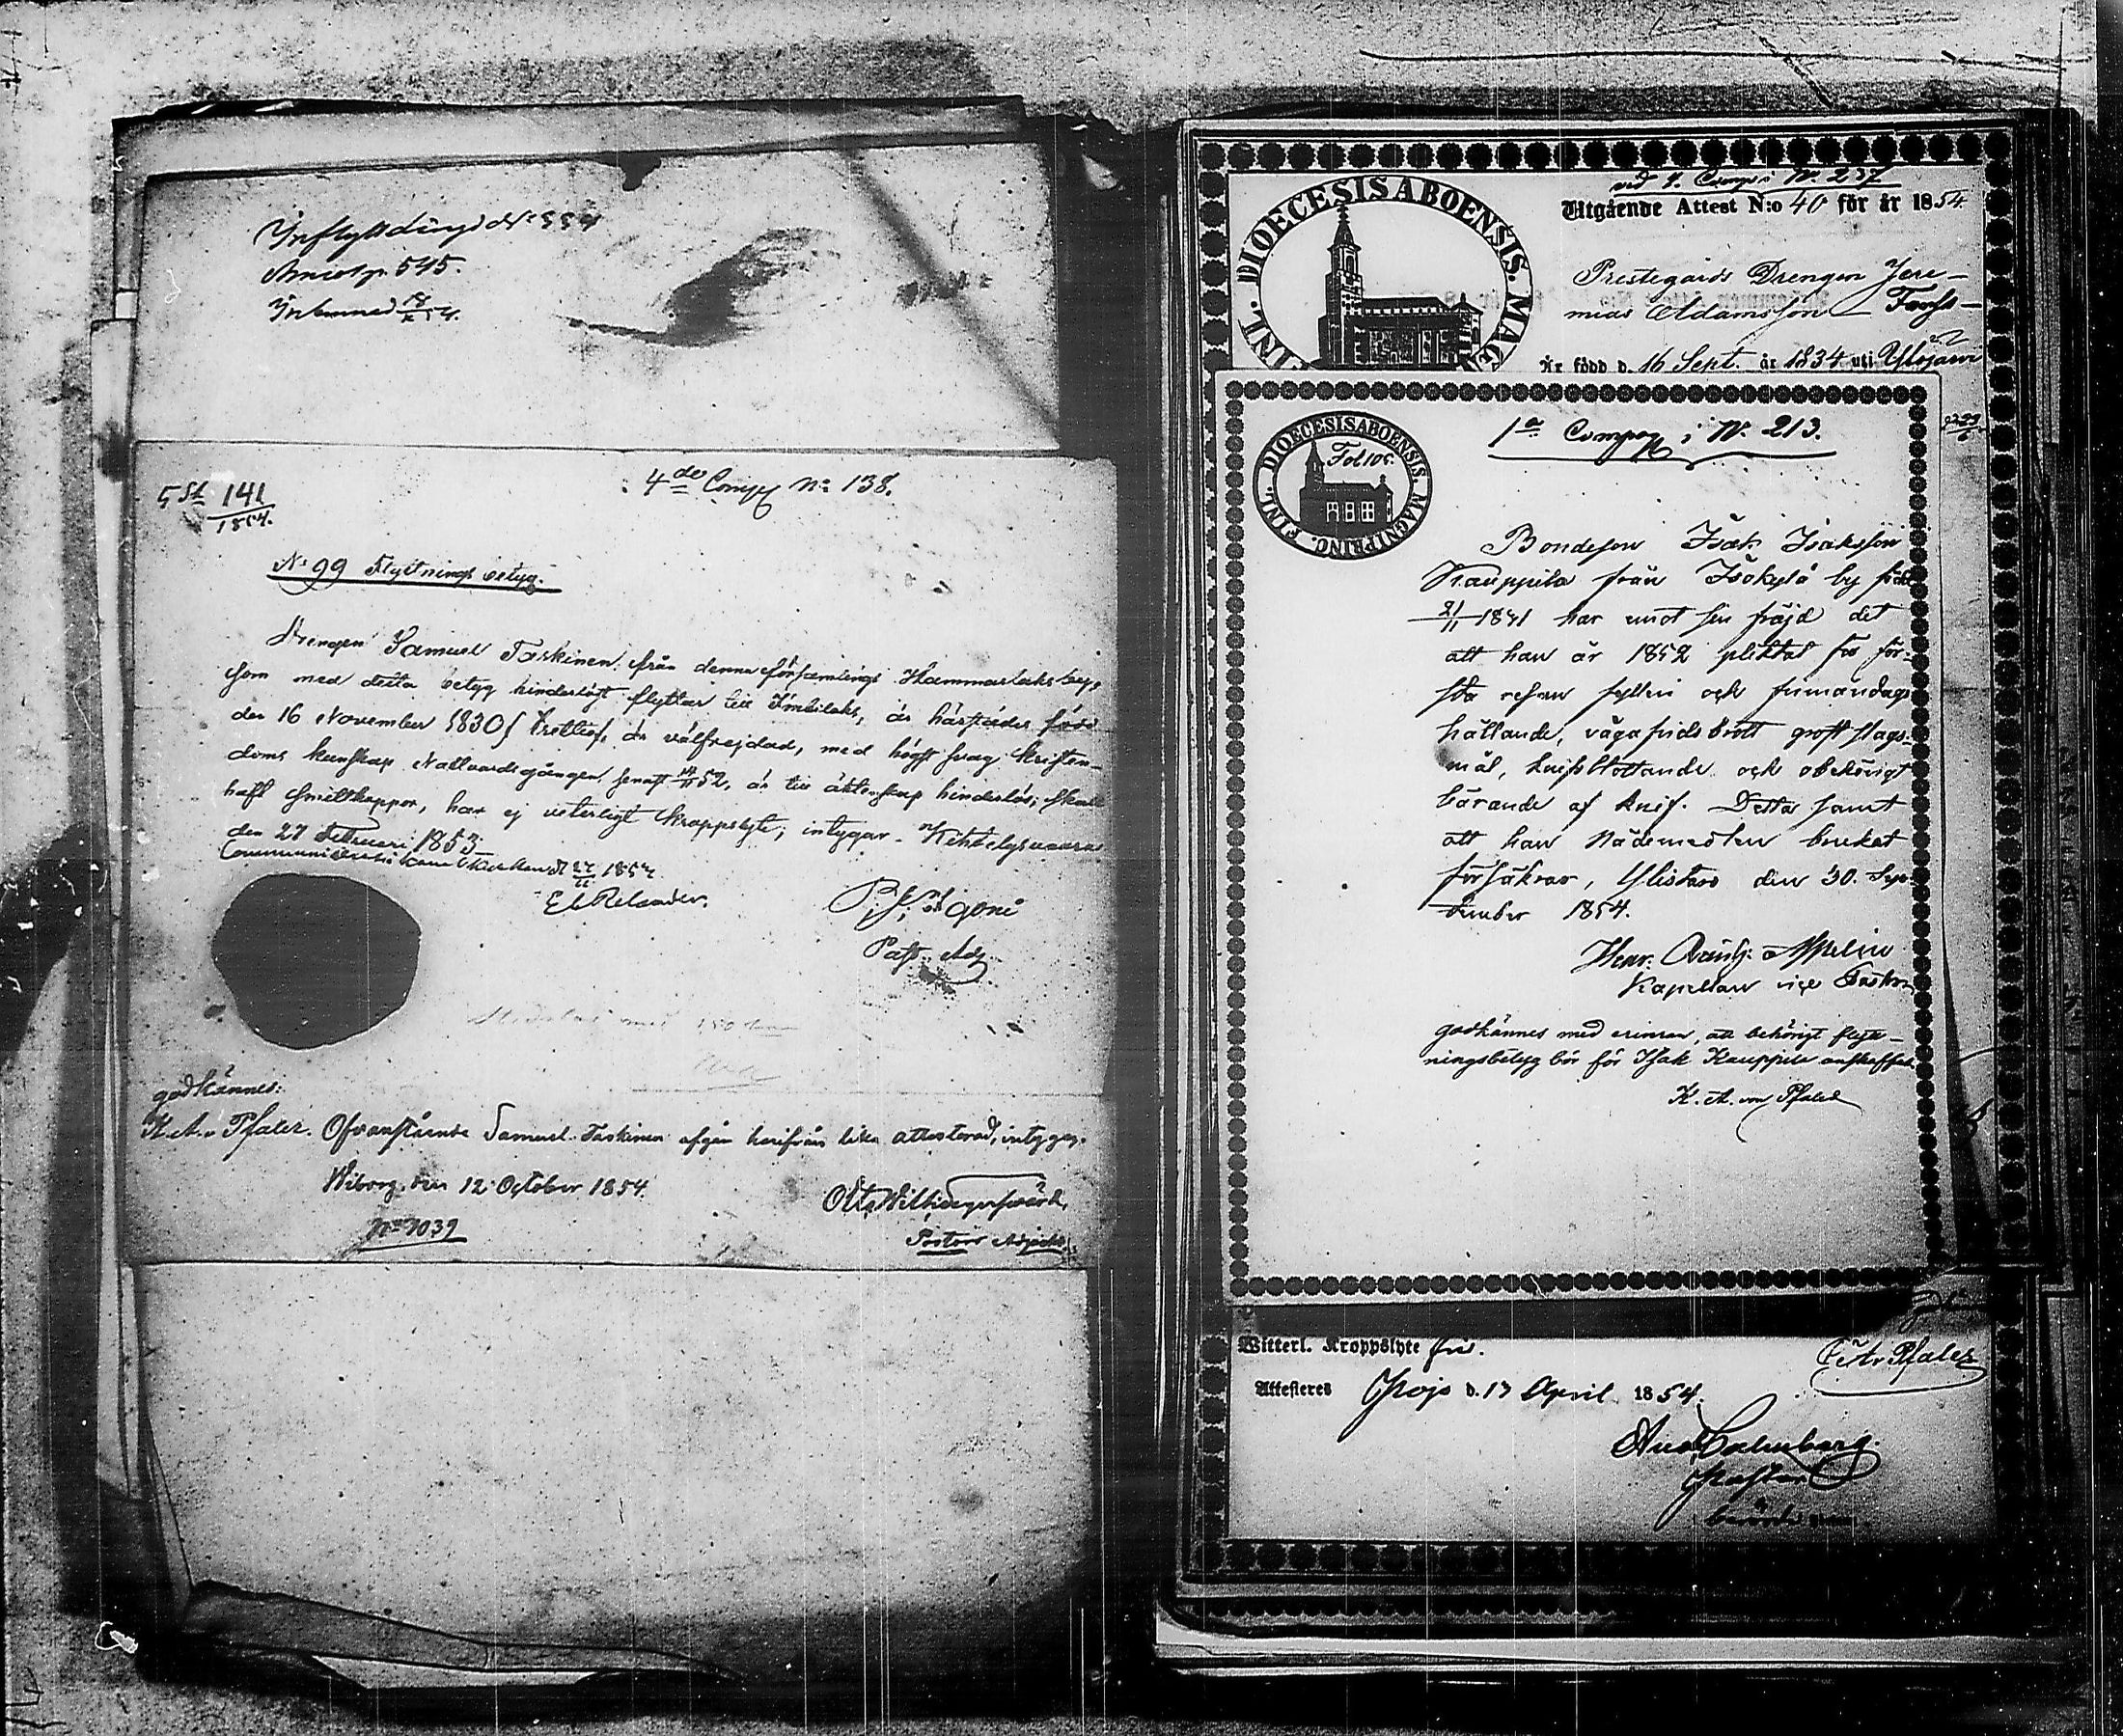 Inflyttdings N:o 334
545.
Inkommed 18/x 54.
5 St 141/1854.
4de Comp N:o 138.
N:o 99 Flyttnings betyg.
Drengen Samuel Taskinen från denna församlings Hammarlaks by,
som med detta betyg hinderlöst flyttar till Imbilaks, är härstädes född
den 16 November 1830 är välfrejdad, med högst svag kristen-
doms kunskap Nattvardsgången senast 52, är till äktenskap hinderlös; skall
haft smittkoppor, har ej veterligt kroppslyte; intygar. Kihtelysvaara
den 27 Februari 1853
1854.
E. Relander.
Past. Adj.
godkännes:
K. A. v Pfaler. Ofvanstående Samuel Taskinen afgår härifrån lika attesterad, intygas.
Wiborg, den 12 October 1854.
N:o 1039
Pastors Adjunkt.
DIOECESIS ABOENSIS. MAG
FINL.
vid 4. Comp. N. 237
Utgående Attest N:o 40 för år 1854
Prestegårds Drengen Jere-
mias Adamsson
Är född d. 16 Sept. år 1834 uti Ylöjärvi
FINL. DIOECESIS ABOENSIS. MAGNI PRINC.
Fol 105.
1a Comp. N. 213.
Bondeson Isak Isaksson
Kauppila från Isokylä by född
21/11 1831 har emot sin fräjd det
att han år 1852 pliktat för för-
sta resan fylleri och
hållande, vägafridsbrott groft slags-
mål, knifblottande och obehörigt
bärande af knif. Detta samt
att han Nådemedlen brukat
försäkrar, Ylistaro den 30. Sep-
tember 1854.
Henr.
Kapellan vice Pastor
godkännes med erinran, att behörigt flytt-
ningsbetyg bör för Isak Kauppila anskaffas.
K. A. von Pfaler
Witterl. Kroppslyte fri.
K. A. v Pfaler
Attesteres d. 17 April 1854.
Pastor